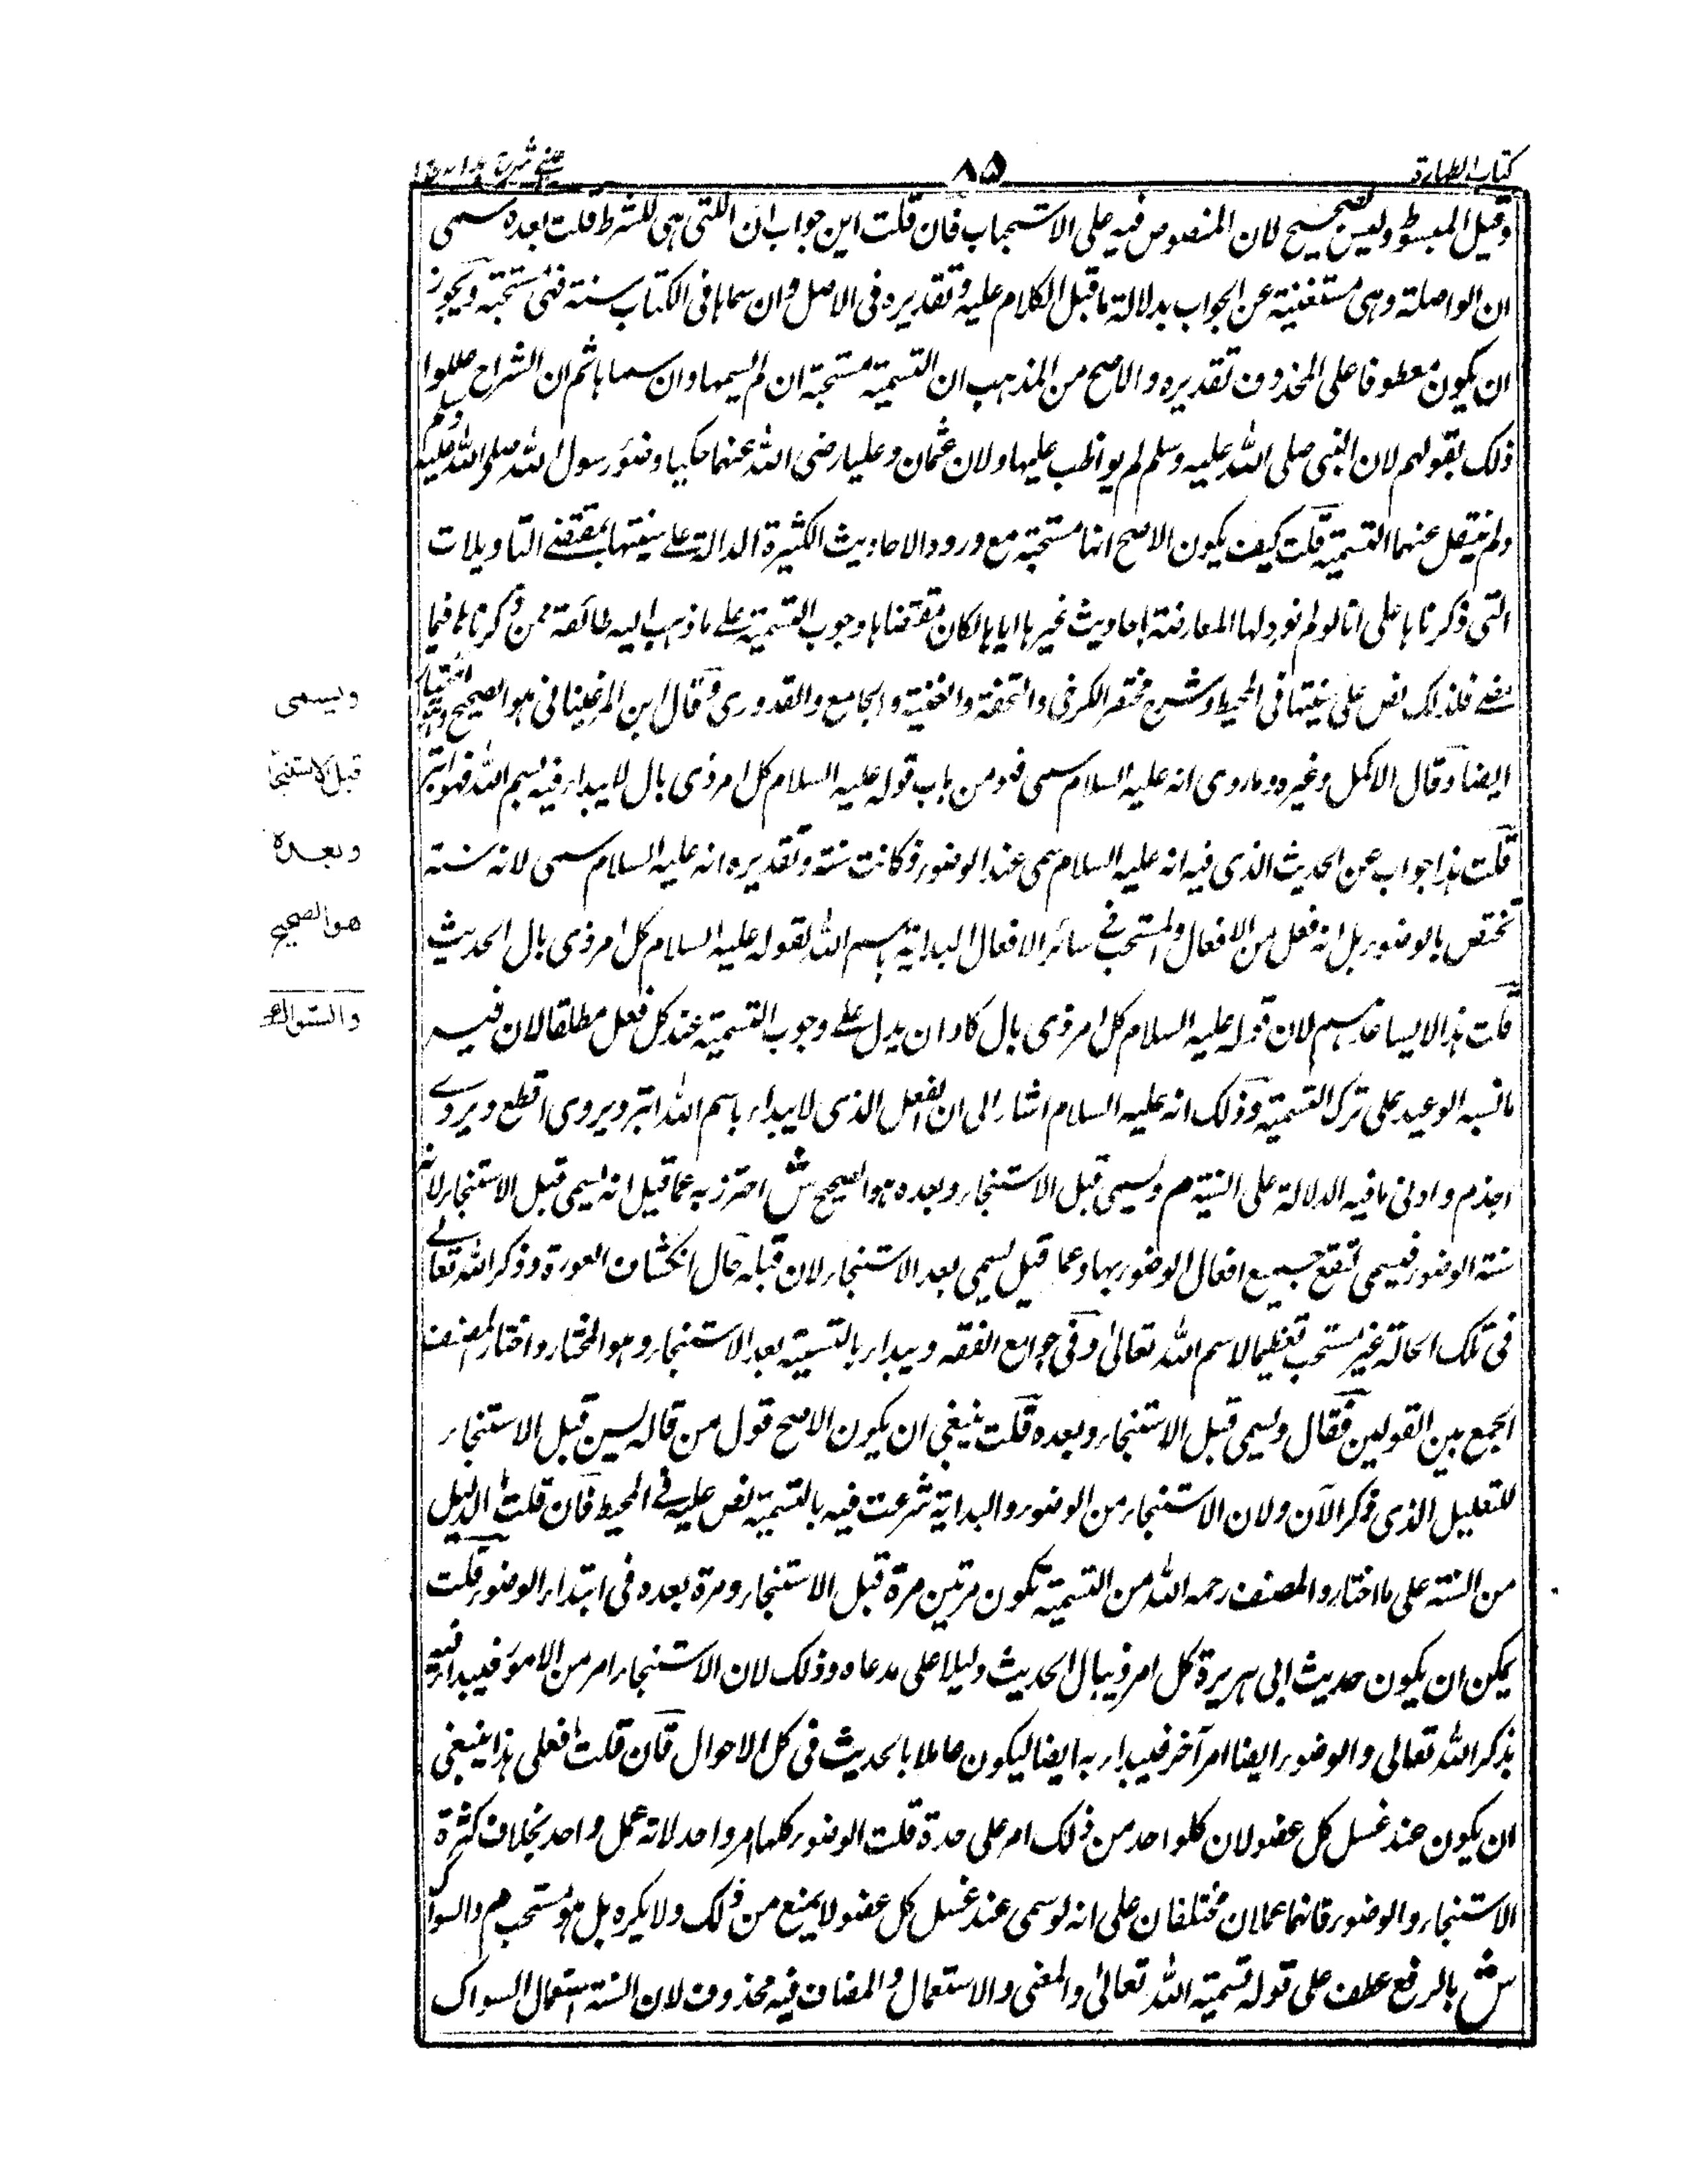 كتاب الطهارة
٨٥
عينى شرح هداية ج ١
وقيل المبسوط وليس بصحيح لان المنصوص فيه على الاستحباب فان قلت اين جواب ان اللتى هى للشرط قلت بعده سمى
ان الواصلة وهى مستغنية عن الجواب بدلالة ما قبل الكلام عليه وتقديره فى الاصل وان سماها فى الكتاب سنة فهى مستحبة ويجوز
ان يكون معطوفا على المحذوف تقديره والاصح من المذهب ان التسمية مستحبة ان لم يسمها وان سماها ثم ان الشراح عللوا
ذلك بقولهم لان النبى صلى الله عليه وسلم لم يواظب عليها ولان عثمان وعليا رضى الله عنهما حكيا وضوء رسول الله صلى الله عليه وسلم
ولم ينقل عنهما التسمية قلت كيف يكون الاصح انها مستحبة مع ورود الاحاديث الكثيرة الدالة على سنيتها بمقتضى التاويلات
التى ذكرناها على انا لو لم نورد لها المعارضة باحاديث غيرها اياها لكان مقتضاها وجوب التسمية على ما ذهب اليه طائفة ممن ذكرناه فيما
مضى فلذلك نص على سنيتها فى المحيط وشرح مختصر الكرخى والتحفة والغنية والجامع والقدورى وقال ابن المرغينانى هو الصحيح وهو اختيار
ايضا وقال الاكمل وغيره وما روى انه عليه السلام سمى فهو من باب قوله عليه السلام كل امر ذى بال لا يبدا فيه بسم الله فهو ابتر
قلت هذا جواب عن الحديث الذى فيه انه عليه السلام سمى عند الوضوء فكانت سنة وتقديره انه عليه السلام سمى لانه سنة
تختص بالوضوء بل انه فعل من الافعال والمستحب فى سائر الافعال البداية باسم الله لقوله عليه السلام كل امر ذى بال الحديث
قلت هذا لا يساعدهم لان قوله عليه السلام كل امر ذى بال كاد ان يدل على وجوب التسمية عند كل فعل مطلقا لان فيه
ما نسبه الوعيد على ترك التسمية وذلك انه عليه السلام اشار الى ان الفعل الذى لا يبداء باسم الله ابتر ويروى اقطع ويروى
اجذم وادنى ما فيه الدلالة على السنية م ويسمى قبل الاستنجاء وبعده هو الصحيح ش احترز به عما قيل انه يسمى قبل الاستنجاء لانه
سنة الوضوء فيسمى لتقع جميع افعال الوضوء بها وعما قيل يسمى بعد الاستنجاء لان قبله حال انكشاف العورة وذكر الله تعالى
فى تلك الحالة غير مستحب تعظيما لاسم الله تعالى وفى جوامع الفقه ويبداء بالتسمية بعد الاستنجاء وهو المختار واختار المصنف
الجمع بين القولين فقال ويسمى قبل الاستنجاء وبعده قلت ينبغى ان يكون الاصح قول من قال يسن قبل الاستنجاء
للتعليل الذى ذكر الآن ولان الاستنجاء من الوضوء والبداية شرعت فيه بالتسمية نص عليه فى المحيط فان قلت ما الدليل
من السنة على ما اختاره المصنف رحمه الله من التسمية تكون مرتين مرة قبل الاستنجاء ومرة بعده فى ابتداء الوضوء قلت
يمكن ان يكون حديث ابى هريرة كل امر ذى بال الحديث دليلا على مدعاه وذلك لان الاستنجاء امر من الامور فيبداء فيه
بذكر الله تعالى والوضوء ايضا امر آخر فيبداء به ايضا ليكون عاملا بالحديث فى كل الاحوال فان قلت فعلى هذا ينبغى
ان يكون عند غسل كل عضو لان كلواحد من ذلك امر على حدة قلت الوضوء كلها امر واحد لانه عمل واحد بخلاف كثرة
الاستنجاء والوضوء فانهما عملان مختلفان على انه لو سمى عند غسل كل عضو لا يمنع من ذلك ولا يكره بل هو مستحب م والسواك
ش بالرفع عطف على قوله تسمية الله تعالى والمعنى والاستعمال والمضاف فيه محذوف لان السنة استعمال السواك
ويسمى
قبل الاستنجا
وبعده
هو الصحيح
والسواك